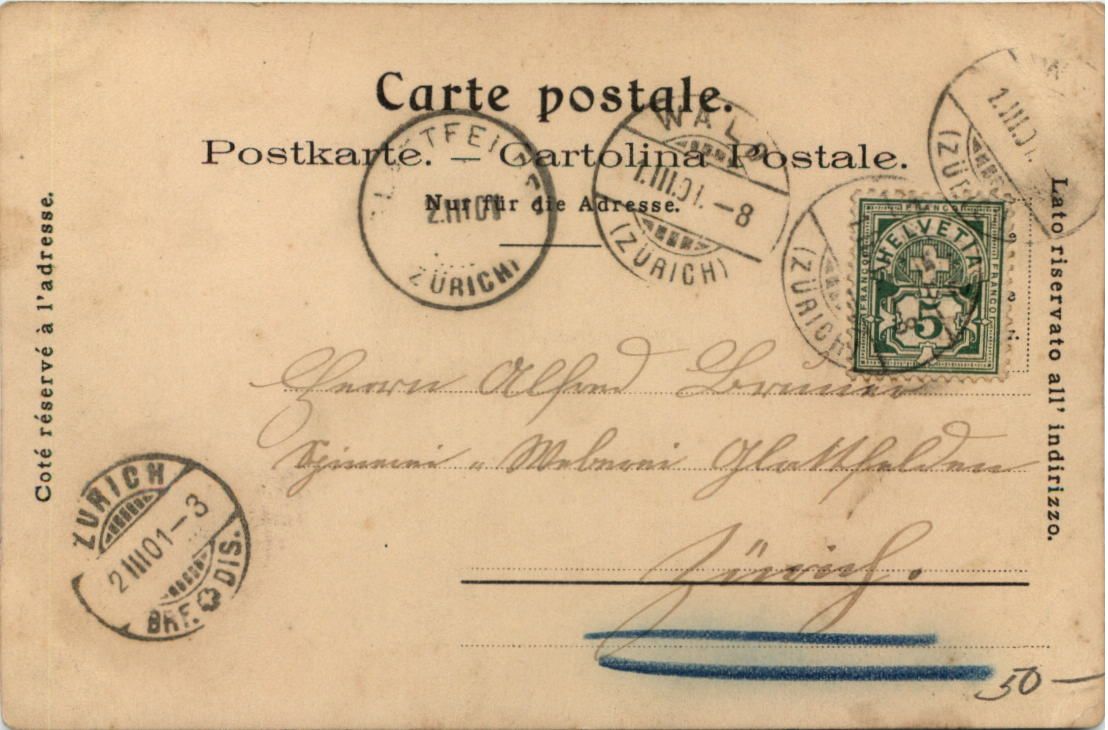 Carte postale.
Postkarte. — Cartolina Postale.
Nur für die Adresse.
Coté réservé à l'adresse.
Lato riservato all' indirizzo.
WALD
1.III.01.–8
(ZÜRICH)
2.III.01
ZÜRICH)
1.III.01.
(ZÜRICH)
8
HELVETIA
FRANCO
FRANCO
FRANCO
5
Herrn Alfred
Spinnerei u. Weberei Glattfelden
Zürich.
ZÜRICH
2.III.01–3
BRF. DIS.
50—